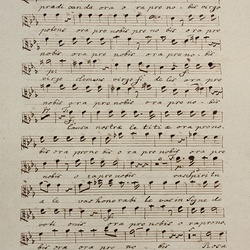 pradicanda ora o ra pro no bis virgo
potens ora pro nobis o ra pro
nobis ora pro nobis ora pro no
virgo clemens virgo fi de lis ora pro
nobis ora pro nobis o ra pro no bis
Causa nostra læ titiæ ora pro no
bis ora pro no bis o ra pro nobis ora pro
nobis o ra pro nobis vas spiritu
a le vas honorabi le vas in signe de
voti onis ora pro nobis o ra pro no
bis ora ora pro no bis Rosa